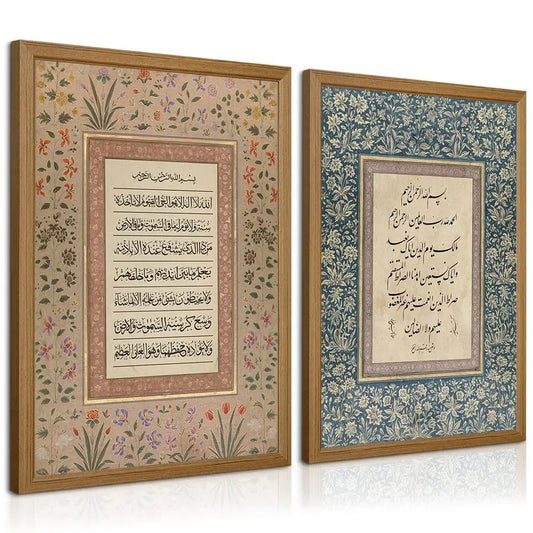 بسم الله الرحمن الرحيم
الله لا اله الا هو الحي القيوم لا تاخذه
سنة ولا نوم له ما في السموت وما في الارض
من ذا الذي يشفع عنده الا باذنه
يعلم ما بين ايديهم وما خلفهم
ولا يحيطون بشئ من علمه الا بما شاء
وسع كرسيه السموت والارض
ولا يؤده حفظهما وهو العلي العظيم
بسم الله الرحمن الرحيم
الحمد لله رب العالمين الرحمن الرحيم
مالك يوم الدين اياك نعبد
واياك نستعين اهدنا الصراط المستقيم
صراط الذين انعمت عليهم غير المغضوب
عليهم ولا الضالين